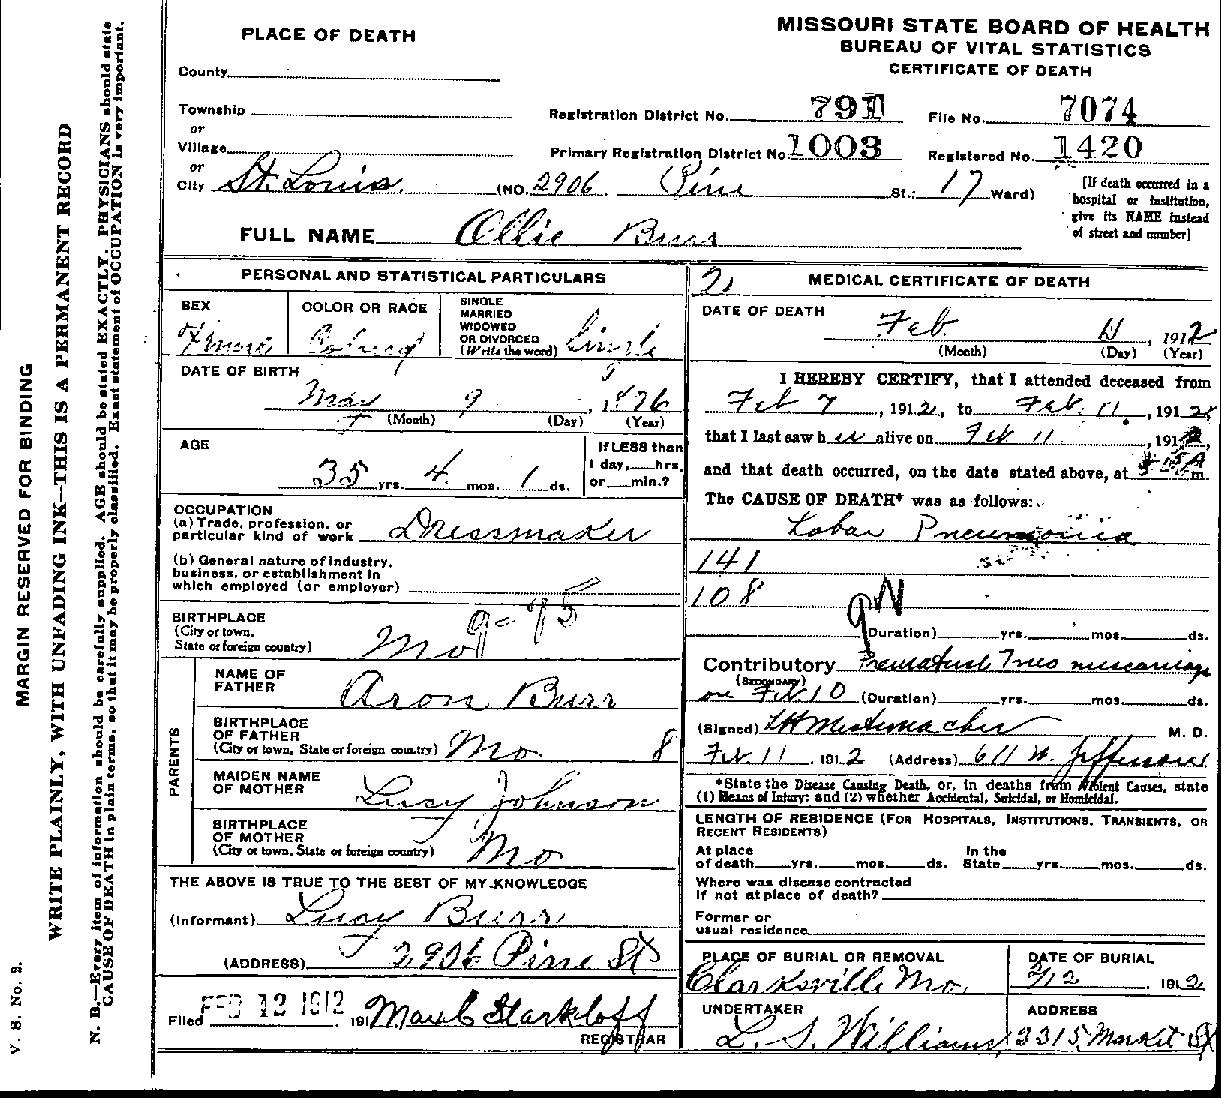 MISSOURI STATE BOARD OF HEALTH
BUREAU OF VITAL STATISTICS
CERTIFICATE OF DEATH
PLACE OF DEATH
County
Township
or
Village
or
City St. Louis (NO. 2906 Pine St.; 17 Ward)
Registration District No. 791 File No. 7074
Primary Registration District No. 1003 Registered No. 1420
[If death occurred in a
hospital or institution,
give its NAME instead
of street and number]
FULL NAME Ollie Burr
PERSONAL AND STATISTICAL PARTICULARS
SEX
COLOR OR RACE
Colored
SINGLE
MARRIED
WIDOWED
OR DIVORCED
(Write the word) Single
DATE OF BIRTH
9 1876
(Month) (Day) (Year)
AGE
35 yrs. 4 mos. 1 ds.
If LESS than
1 day, hrs.
or min.?
OCCUPATION
(a) Trade, profession, or
particular kind of work Dressmaker
(b) General nature of industry,
business, or establishment in
which employed (or employer)
9-95
BIRTHPLACE
(City or town,
State or foreign country) Mo
PARENTS
NAME OF
FATHER Aron Burr
BIRTHPLACE
OF FATHER
(City or town, State or foreign country) Mo. 8
MAIDEN NAME
OF MOTHER Lucy Johnson
BIRTHPLACE
OF MOTHER
(City or town, State or foreign country) Mo
THE ABOVE IS TRUE TO THE BEST OF MY KNOWLEDGE
(Informant) Lucy Burr
(ADDRESS) 2906 Pine St
Filed FEB 12 1912 191 Max C Starkloff
REGISTRAR
2
MEDICAL CERTIFICATE OF DEATH
DATE OF DEATH
Feb 11, 1912
(Month) (Day) (Year)
I HEREBY CERTIFY, that I attended deceased from
Feb 7, 1912, to Feb. 11, 1912
that I last saw her alive on Feb 11, 1912,
and that death occurred, on the date stated above, at m.
The CAUSE OF DEATH* was as follows:
Lobar Pneumonia
141
108
(Duration) yrs. mos. ds.
Contributory miscarriage
(SECONDARY)
on Feb 10 (Duration) yrs. mos. ds.
(Signed) M. D.
Feb 11, 1912 (Address) 611 N. Jefferson
*State the Disease Causing Death, or, in deaths from Violent Causes, state
(1) Means of Injury; and (2) whether Accidental, Suicidal, or Homicidal.
LENGTH OF RESIDENCE (FOR HOSPITALS, INSTITUTIONS, TRANSIENTS, OR
RECENT RESIDENTS)
At place In the
of death yrs. mos. ds. State yrs. mos. ds.
Where was disease contracted
if not at place of death?
Former or
usual residence
PLACE OF BURIAL OR REMOVAL
Clarksville Mo.
DATE OF BURIAL
2/12, 1912
UNDERTAKER
L. S. Williams
ADDRESS
2315 Market St
MARGIN RESERVED FOR BINDING
WRITE PLAINLY, WITH UNFADING INK—THIS IS A PERMANENT RECORD
N. B.—Every item of information should be carefully supplied. AGE should be stated EXACTLY. PHYSICIANS should state
CAUSE OF DEATH in plain terms, so that it may be properly classified. Exact statement of OCCUPATION is very important.
V. S. No. 2.